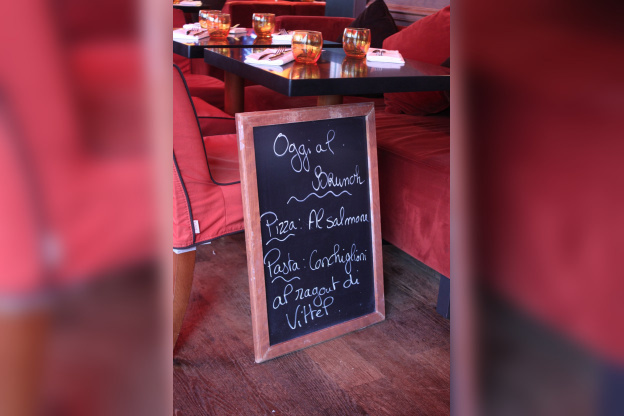 Oggi al
Brunch
Pizza: Al salmone
Pasta: Conchiglioni
al ragout di
Vittel.